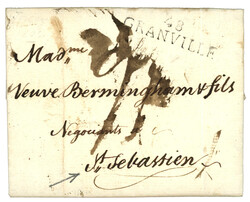 48
GRANVILLE
Madme
Veuve Bermingham & fils
Negociants a
St Sebastien